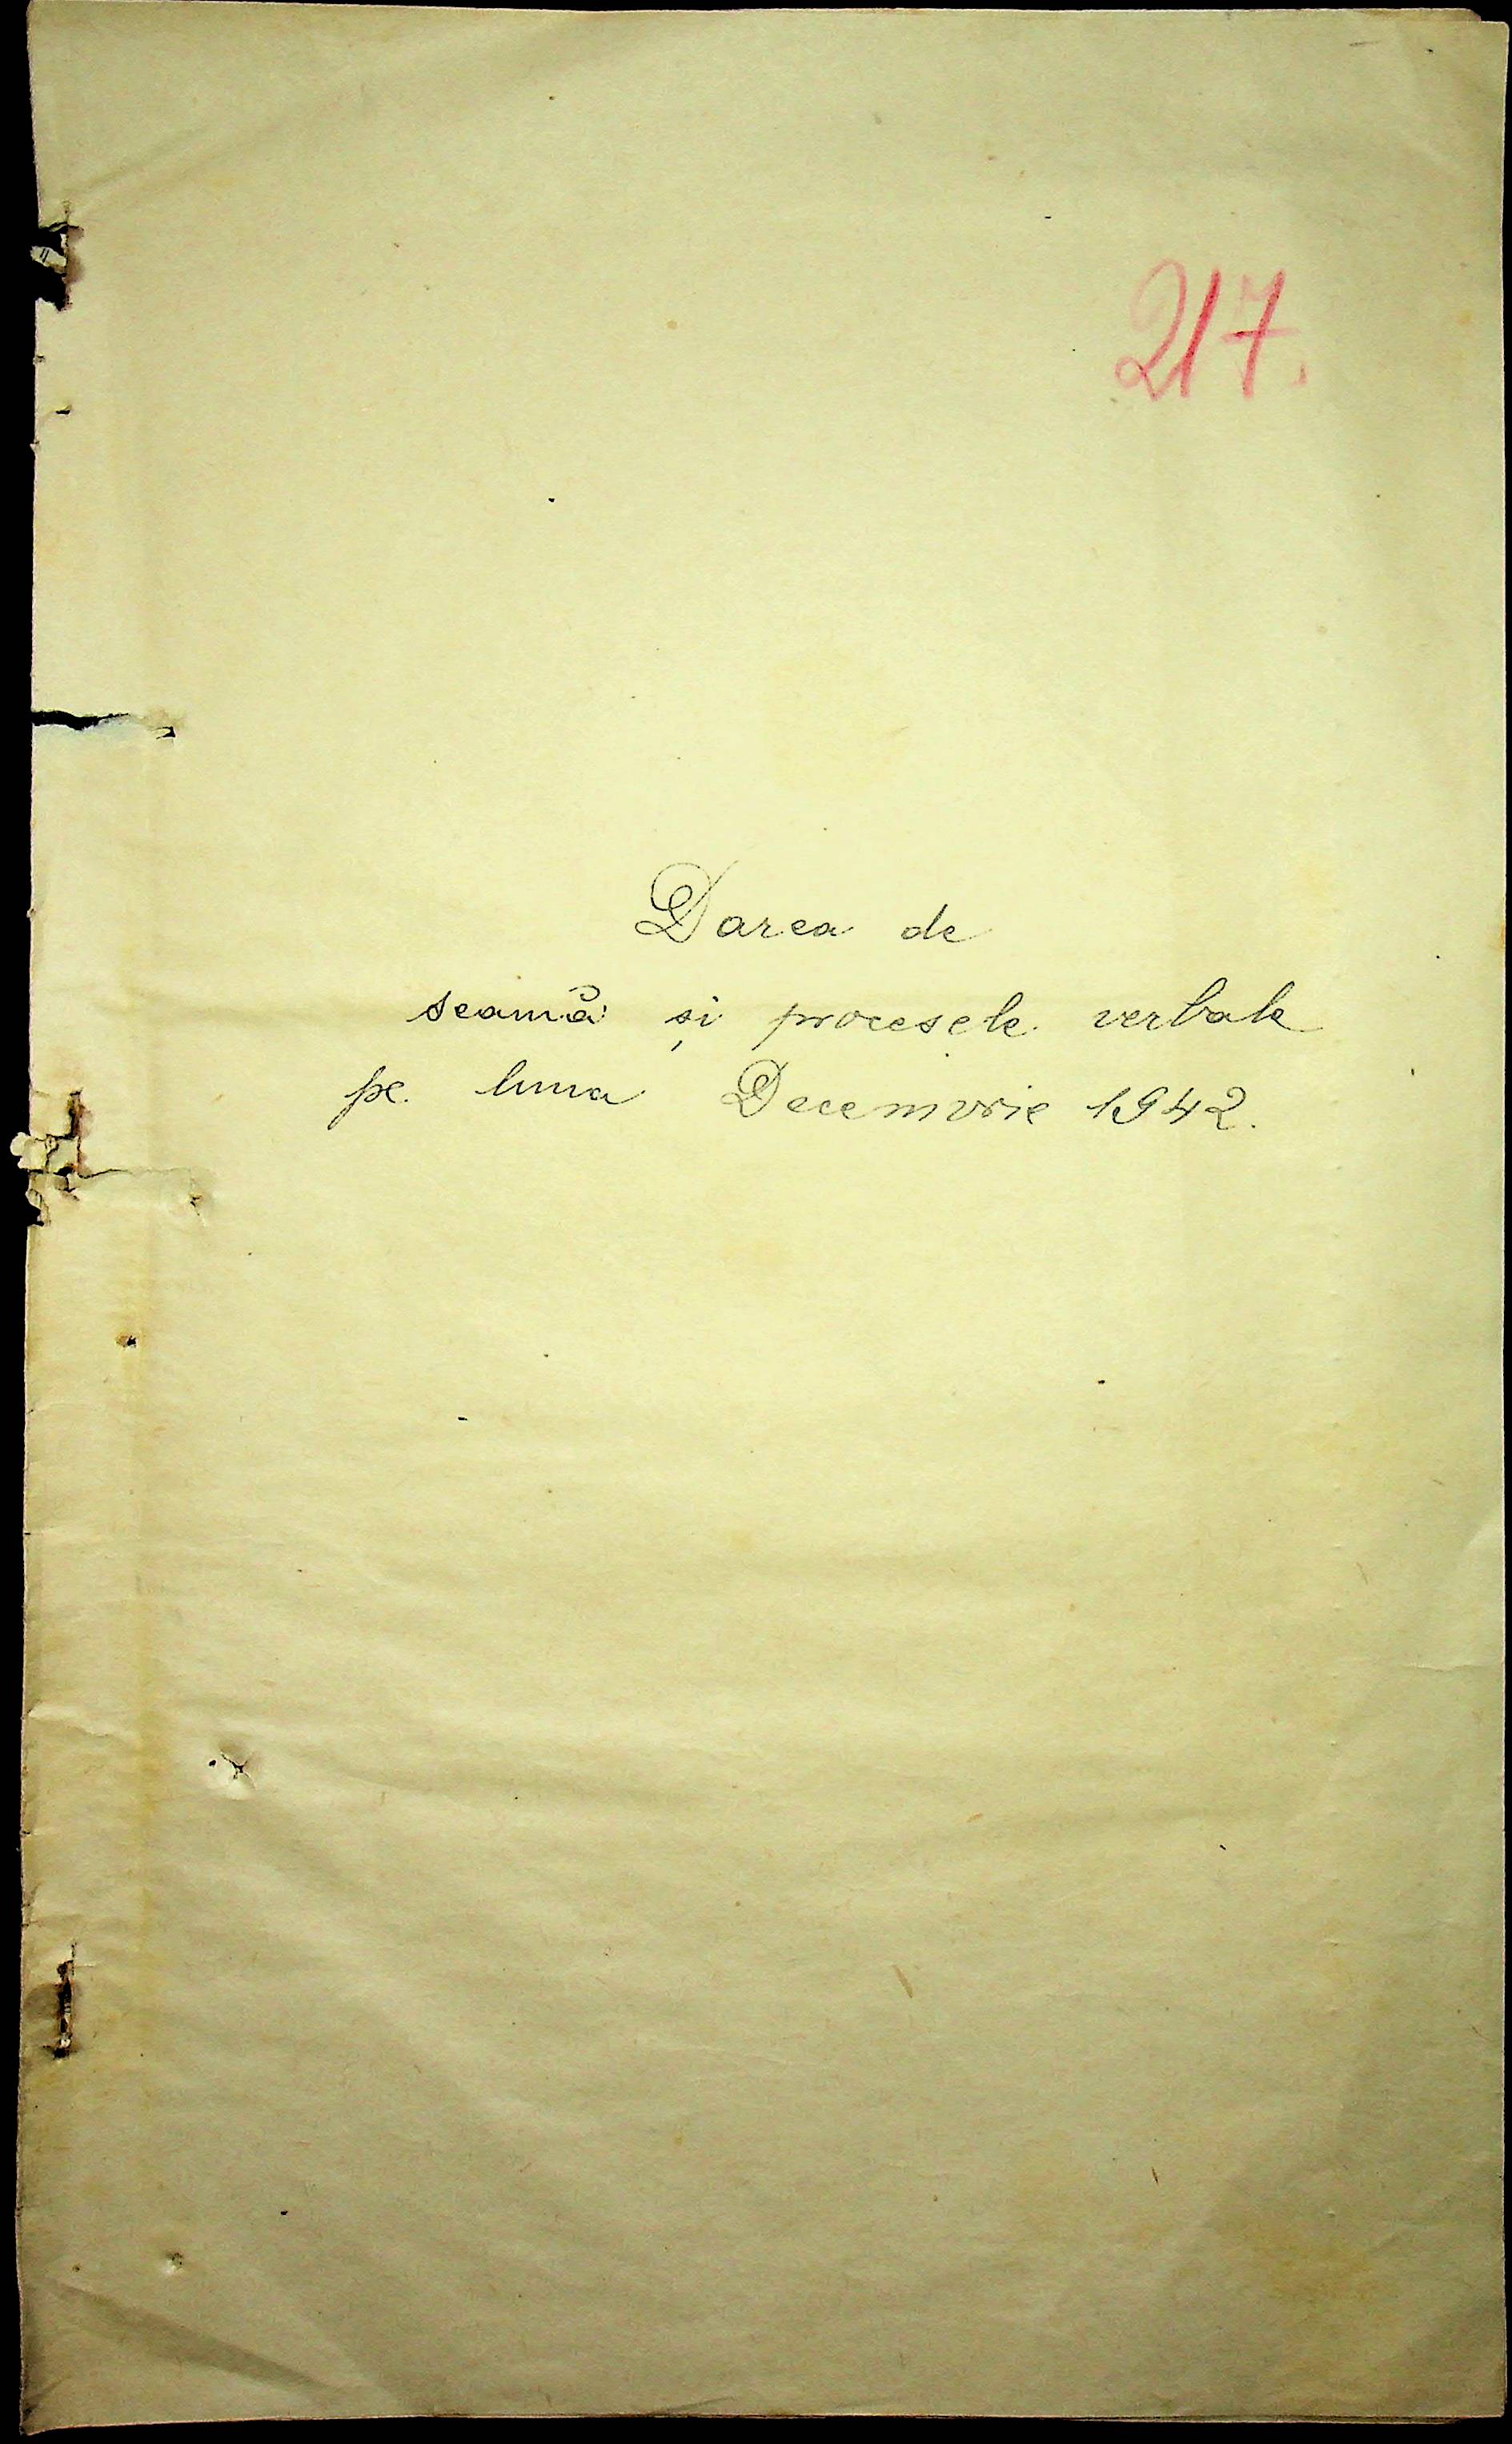 217.
Darea de
seamă și procesele verbale
pe luna Decemvrie 1942.